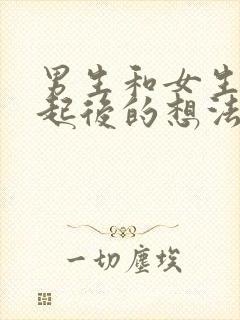 男生和女生
起後的想法
一切塵埃